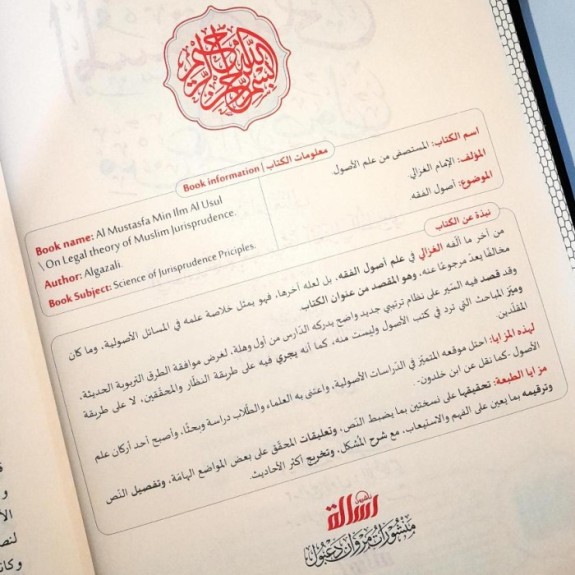 بسم الله الرحمن الرحيم
معلومات الكتاب | Book information
اسم الكتاب: المستصفى من علم الأصول.
المؤلف: الإمام الغزالي.
الموضوع: أصول الفقه.
Book name: Al Mustasfa Min Ilm Al Usul
\ On Legal theory of Muslim Jurisprudence.
Author: Algazali.
Book Subject: Science of Jurisprudence Priciples.
نبذة عن الكتاب
من آخر ما ألفه الغزالي في علم أصول الفقه، بل لعله آخرها، فهو يمثل خلاصة علمه في المسائل الأصولية، وما كان
مخالفًا يعدّ مرجوعًا عنه، وهو المقصد من عنوان الكتاب.
وقد قصد فيه السّير على نظام ترتيبي جديد واضح يدركه الدّارس من أول وهلة، لغرض موافقة الطرق التربوية الحديثة،
وميّز المباحث التي ترد في كتب الأصول وليست منه، كما أنه يجري فيه على طريقة النظّار والمحقّقين، لا على طريقة
المقلّدين.
لهذه المزايا: احتل موقعه المتميّز في الدّراسات الأصولية، واعتنى به العلماء والطّلاب دراسة وبحثًا، وأصبح أحد أركان علم
الأصول -كما نقل عن ابن خلدون-.
مزايا الطبعة: تحقيقها على نسختين بما يضبط النّص، وتعليقات المحقّق على بعض المواضع الهامّة، وتفصيل النّص
وترقيمه بما يعين على الفهم والاستيعاب، مع شرح المُشكل، وتخريج أكثر الأحاديث.
الرسالة
ناشرون
منشورات مروان دعبول